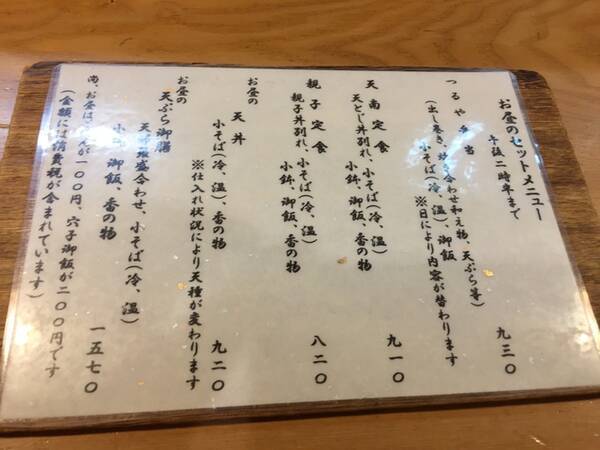 お昼のセットメニュー
午後二時半まで
つるや弁当
(出し巻き、炒め合わせ和え物、天ぷら等)
小そば(冷、温)、御飯
※日により内容が替わります
九三〇
天南定食
天とじ丼別れ、小そば(冷、温)
小鉢、御飯、香の物
九一〇
親子定食
親子丼別れ、小そば(冷、温)
小鉢、御飯、香の物
八二〇
お昼の
天丼
小そば(冷、温)、香の物
九二〇
※仕入れ状況により天種が変わります
お昼の
天ぷら御膳
天 盛合わせ、小そば(冷、温)
小 、御飯、香の物
一五七〇
尚、お昼は が一〇〇円、穴子御飯が二〇〇円です
(金額には消費税が含まれています)